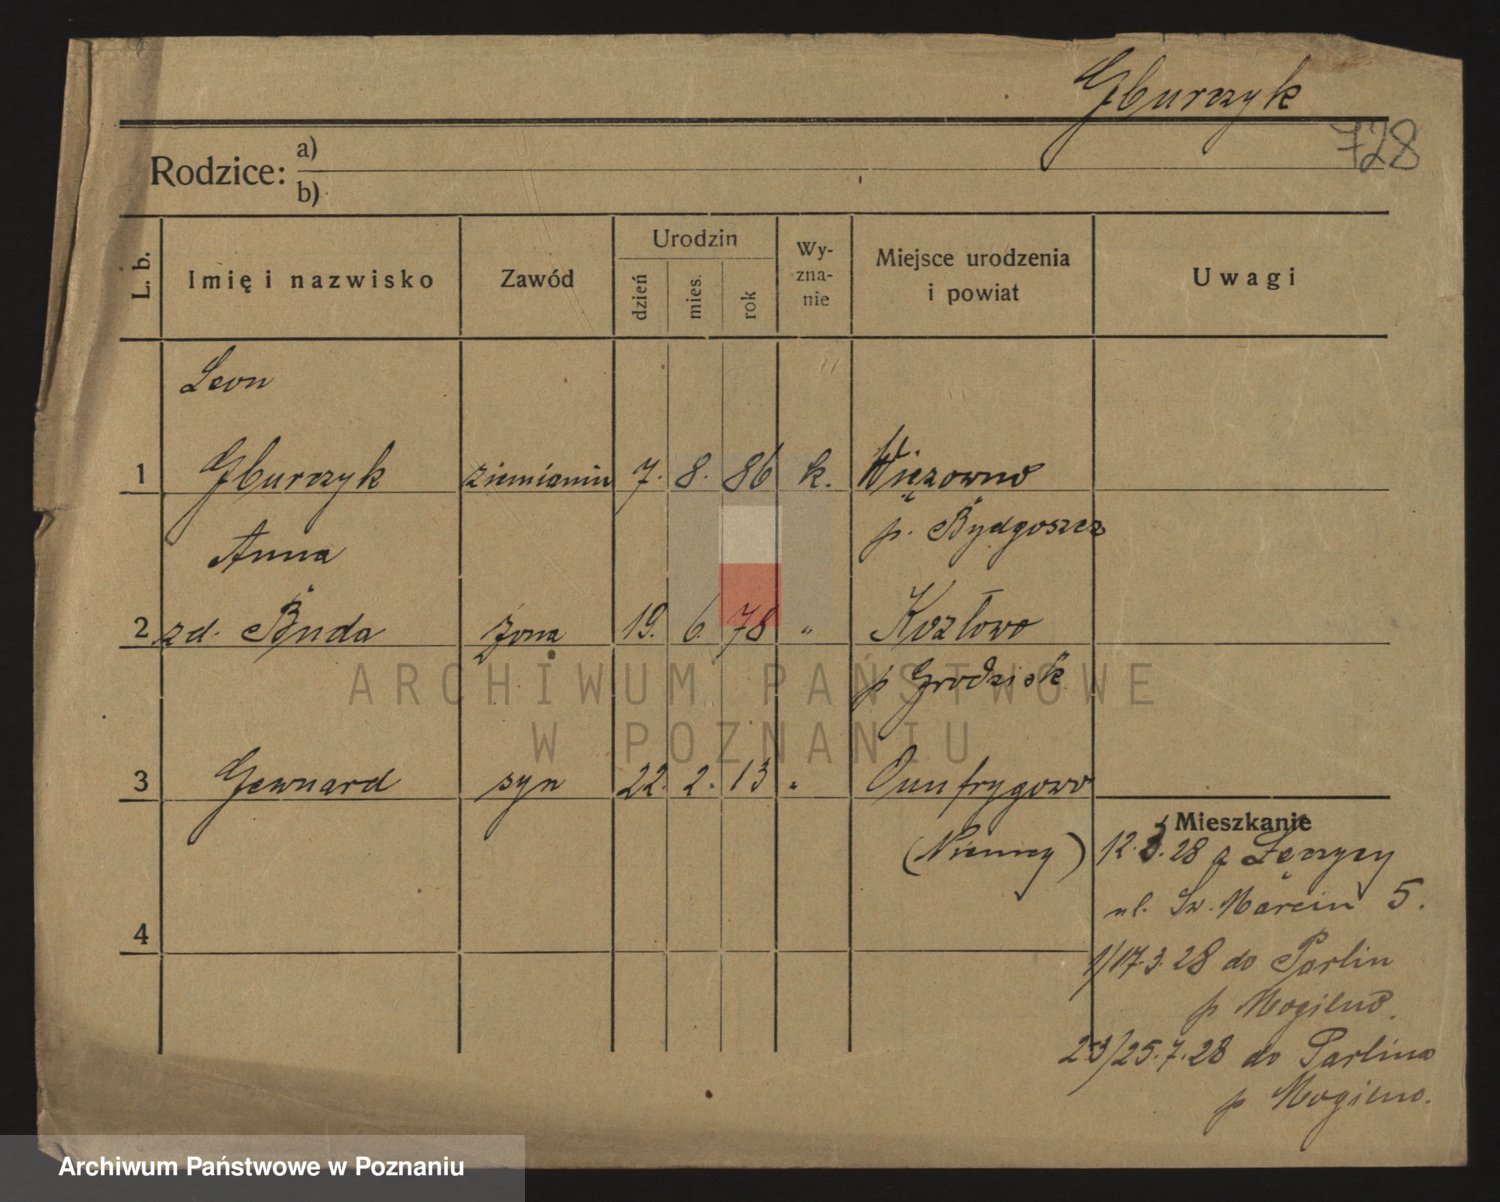 Gburczyk
728
Rodzice: a)
b)
L. b. Imię i nazwisko Zawód Urodzin dzień mies. rok Wy-zna-nie Miejsce urodzenia i powiat Uwagi
Leon
1 Gburczyk ziemianin 7. 8. 86 k. Więzowno
p. Bydgoszcz
Anna
2 zd. Buda żona 19. 6. 78 " Kozłowo
p Grodzisk
3 syn 22. 2. 13 "
Mieszkanie
(Niemcy) 12.3.28 z
ul. Św. Marcin 5.
4
1/17.3.28 do Parlin
p Mogilno.
2-3/25.7.28 do Parlina
p Mogilno.
ARCHIWUM PAŃSTWOWE
W POZNANIU
Archiwum Państwowe w Poznaniu